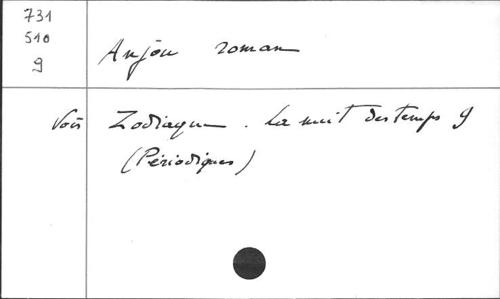 731
510
9
Anjou roman
Voir Zodiaque. La nuit des temps 9
(Périodiques)